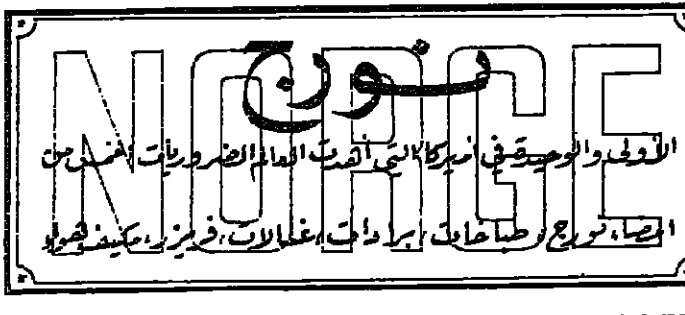 NORGE
نورج
الأولى والوحيدة في اميركا التي أهدت العالم الضروريات الخمس من
نورج، طباخات، برادات، غسالات، فريزر، مكيف هواء